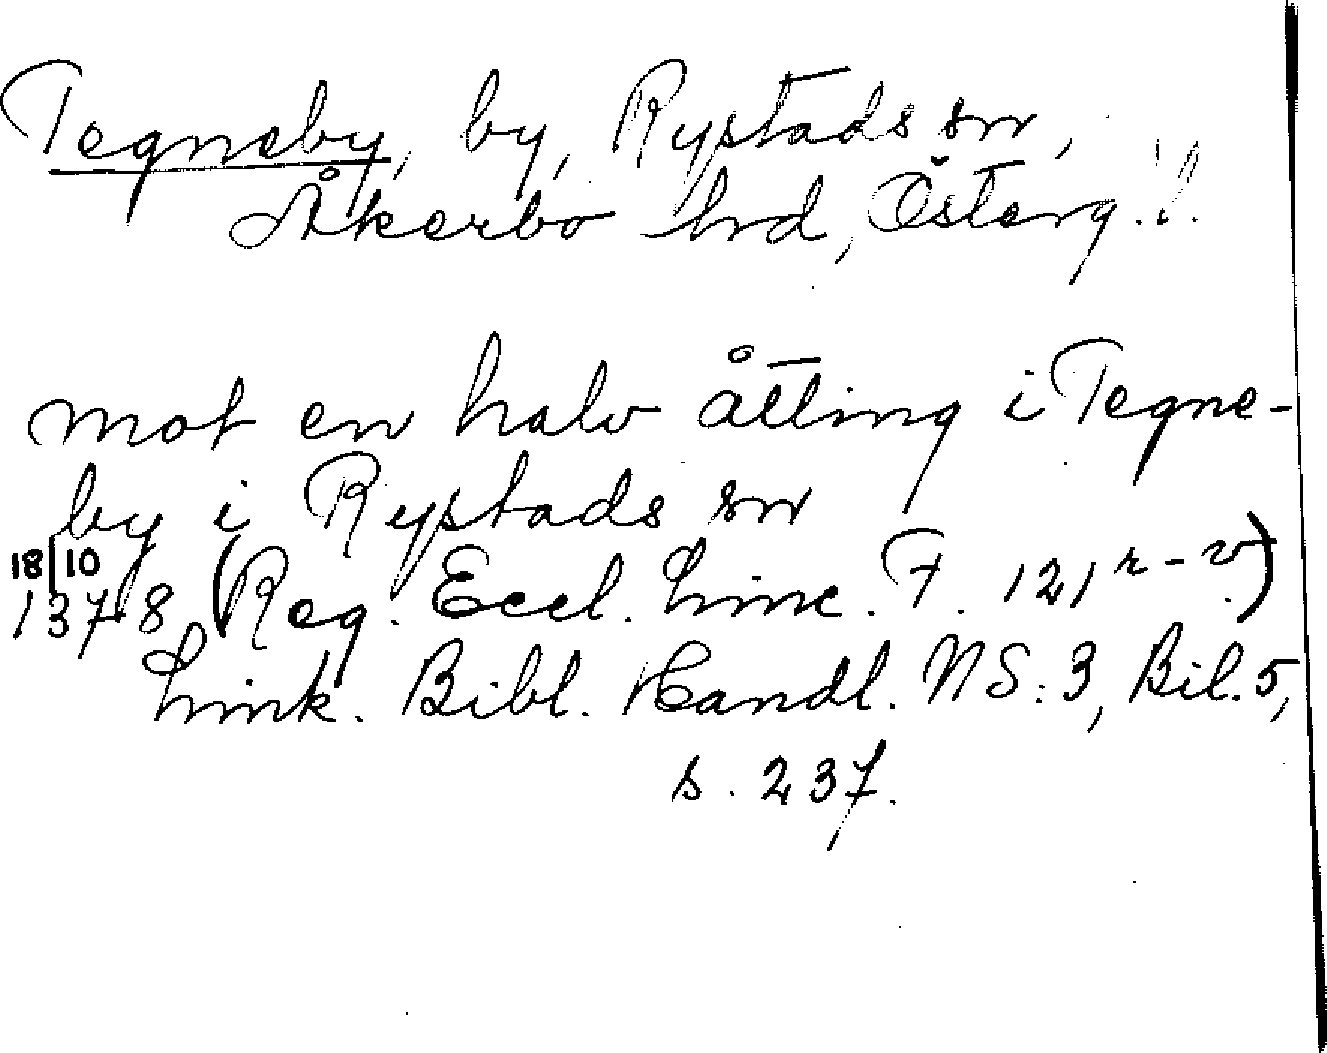 Tegneby, by, Rystads sn,
Åkerbo hrd, Österg. l.
mot en halv åtting i Tegne-
by i Rystads sn
18/10
1378 (Reg. Eccl. Linc. F. 121 r-v)
Link. Bibl. Handl. NS: 3, Bil. 5,
s. 237.